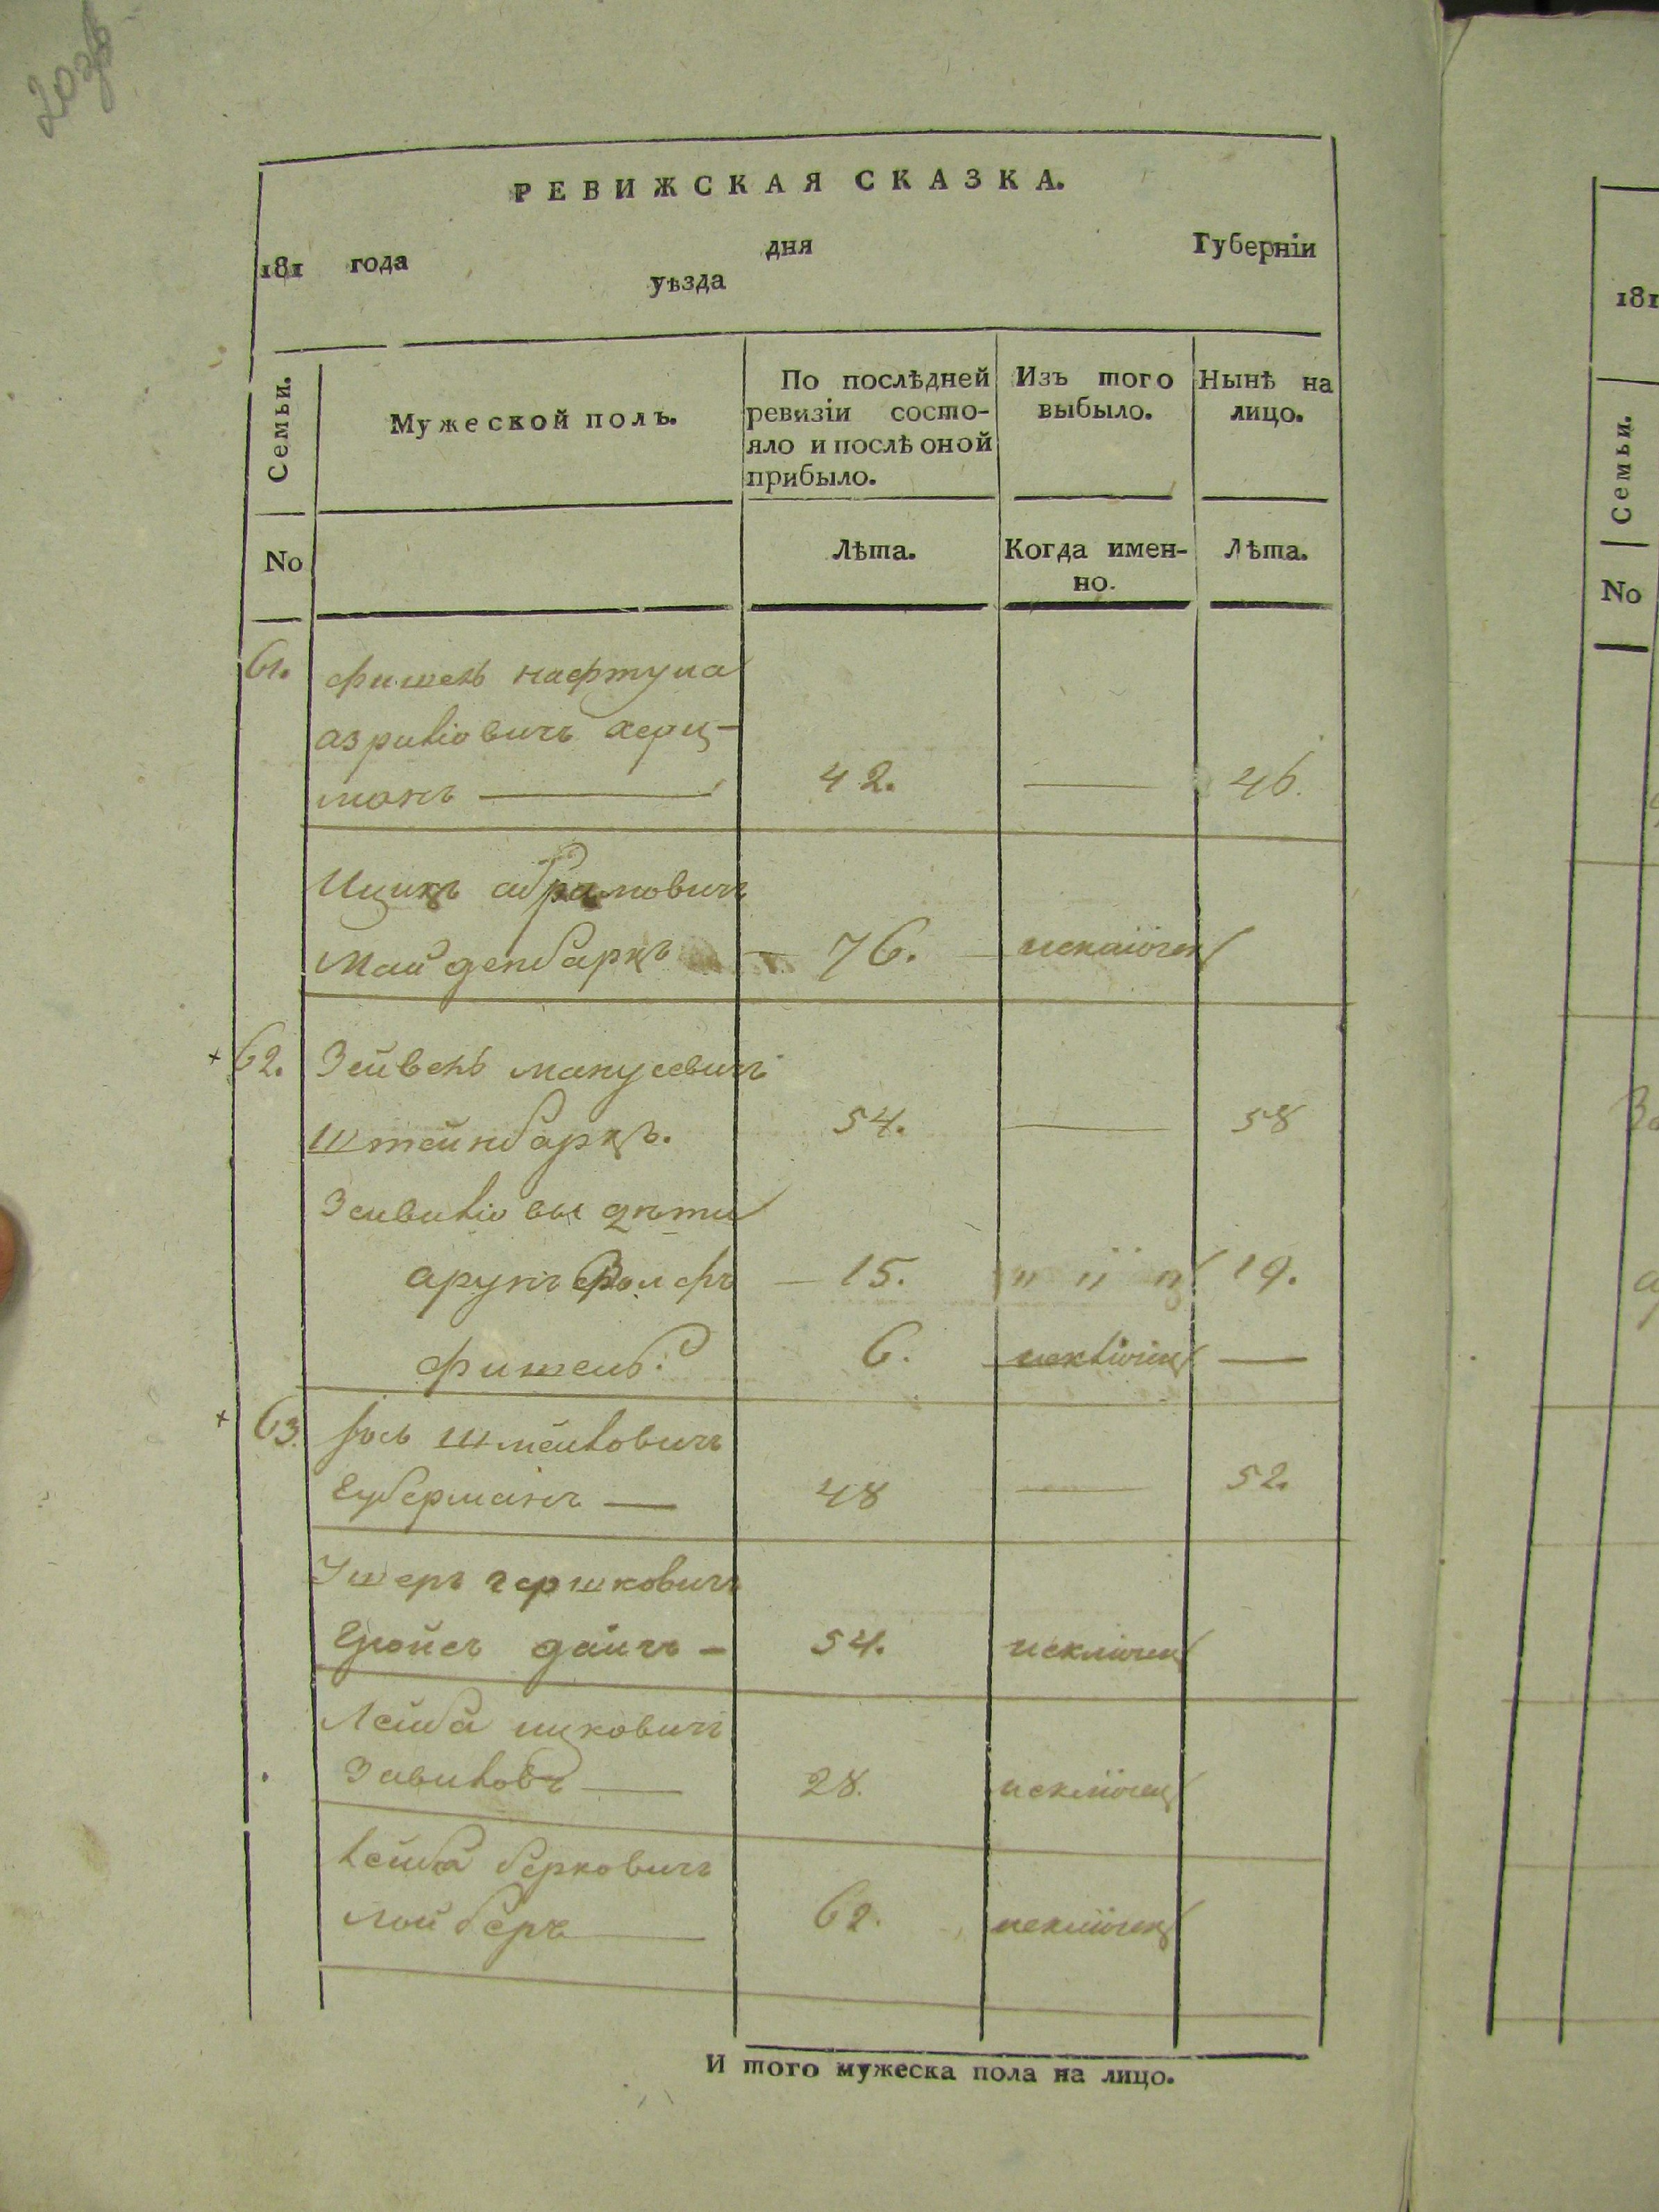 РЕВИЖСКАЯ СКАЗКА.
181 года дня Губерніи
уѣзда
Семьи.
Мужеской полъ.
По послѣдней ревизіи состо-
яло и послѣ оной
прибыло.
Изъ того
выбыло.
Нынѣ на
лицо.
No
Лѣта.
Когда имен-
но.
Лѣта.
61. фишель нафтула
азриліовичъ херц-
манъ 42. — 46.
Ицикъ абрамовичъ
Майденбаркъ — 76. исключен
+ 62. Зейвель манусевичъ
Штейнбаркъ. 54. — 58
Зейвиліовы дѣти
арунъ Волфъ — 15. " " " 19.
фишель. 6. исключен —
+ 63. Іось Шмойловичъ
Губерманъ — 48 — 52.
Ушеръ гершковичъ
Гройсъ даичъ — 54. исключен
Лейба ицковичъ
Завиловъ — 28. исключен
Лейба берковичъ
Лойберъ — 62. исключен
И того мужеска пола на лицо.
181
Семьи.
No